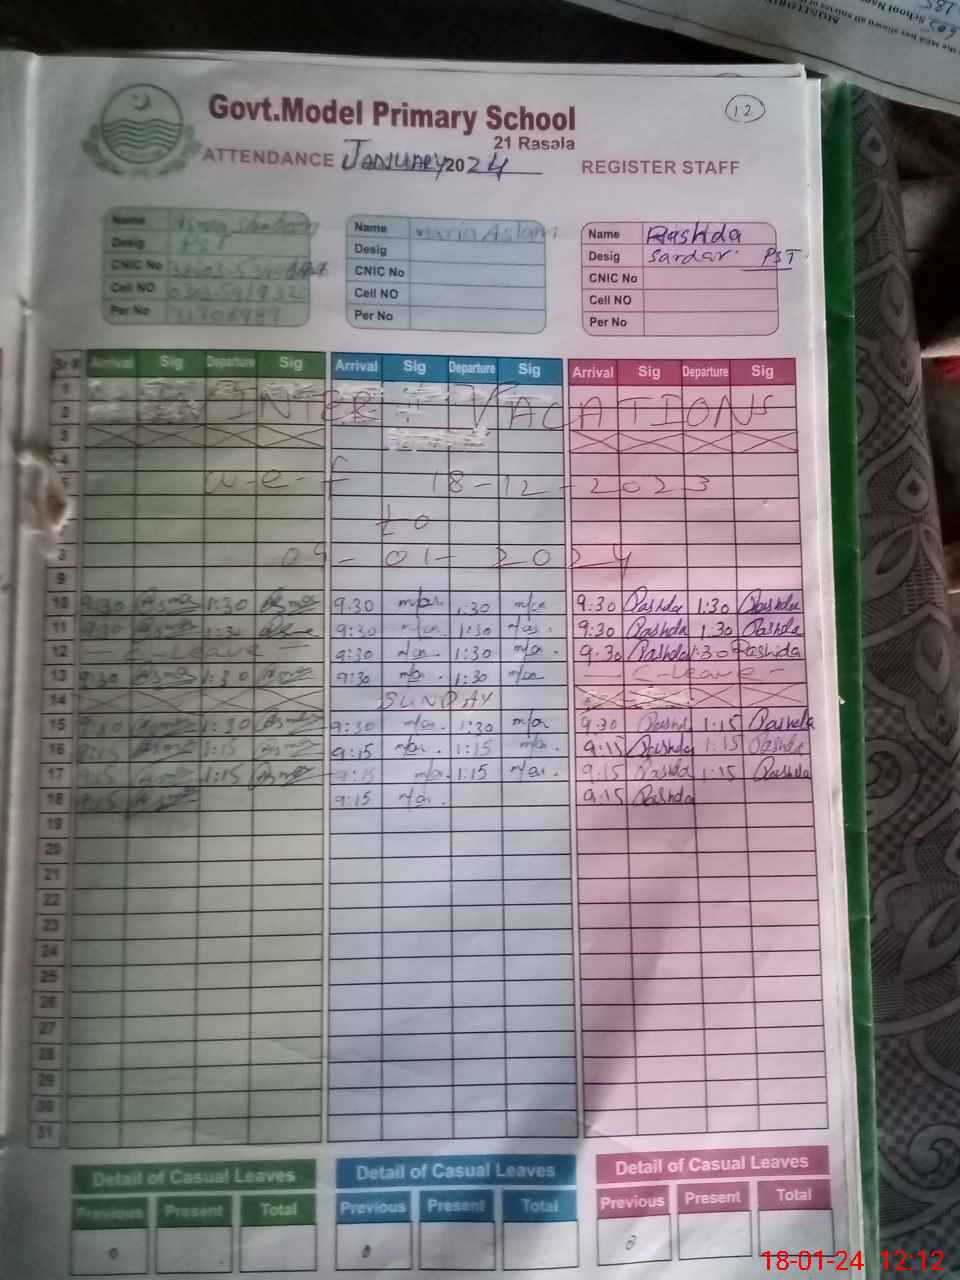 12
Govt.Model Primary School
21 Rasala
ATTENDANCE JANUARY 2024 REGISTER STAFF
Name
Desig PST
CNIC No
Cell NO
Per No
Name maria Aslam
Desig
CNIC No
Cell NO
Per No
Name Rashda
Desig Sardar PST
CNIC No
Cell NO
Per No
Sr # Arrival Sig Departure Sig Arrival Sig Departure Sig Arrival Sig Departure Sig
1
2 WINTER VACATIONS
3
4
5 w-e-f 18-12-2023
to
8 09-01-2024
9
10 9:30 Asma 1:30 Asma 9.30 mar 1:30 mar 9:30 Rashda 1:30 Rashda
11 9:30 Asma 1:30 Asma 9:30 mar 1:30 mar 9:30 Rashda 1:30 Rashda
12 C-Leave 9:30 mar 1:30 mar 9.30 Rashda 1:30 Rashda
13 9:30 Asma 1:30 Asma 9:30 mar 1:30 mar C-Leave
14 SUNDAY
15 1:30 Asma 9:30 mar 1:30 mar 9:30 Rashd 1:15 Rashda
16 9:15 Asma 1:15 Asma 9:15 mar 1:15 mar 9:15 Rashda 1:15 Rashda
17 9:15 Asma 1:15 Asma 9:15 mar 1:15 mar 9:15 Rashda 1:15 Rashda
18 9:15 Asma 9:15 mar 9:15 Rashda
19
20
21
22
23
24
25
26
27
28
29
30
31
Detail of Casual Leaves Detail of Casual Leaves Detail of Casual Leaves
Previous Present Total Previous Present Total Previous Present Total
0
18-01-24 12:12